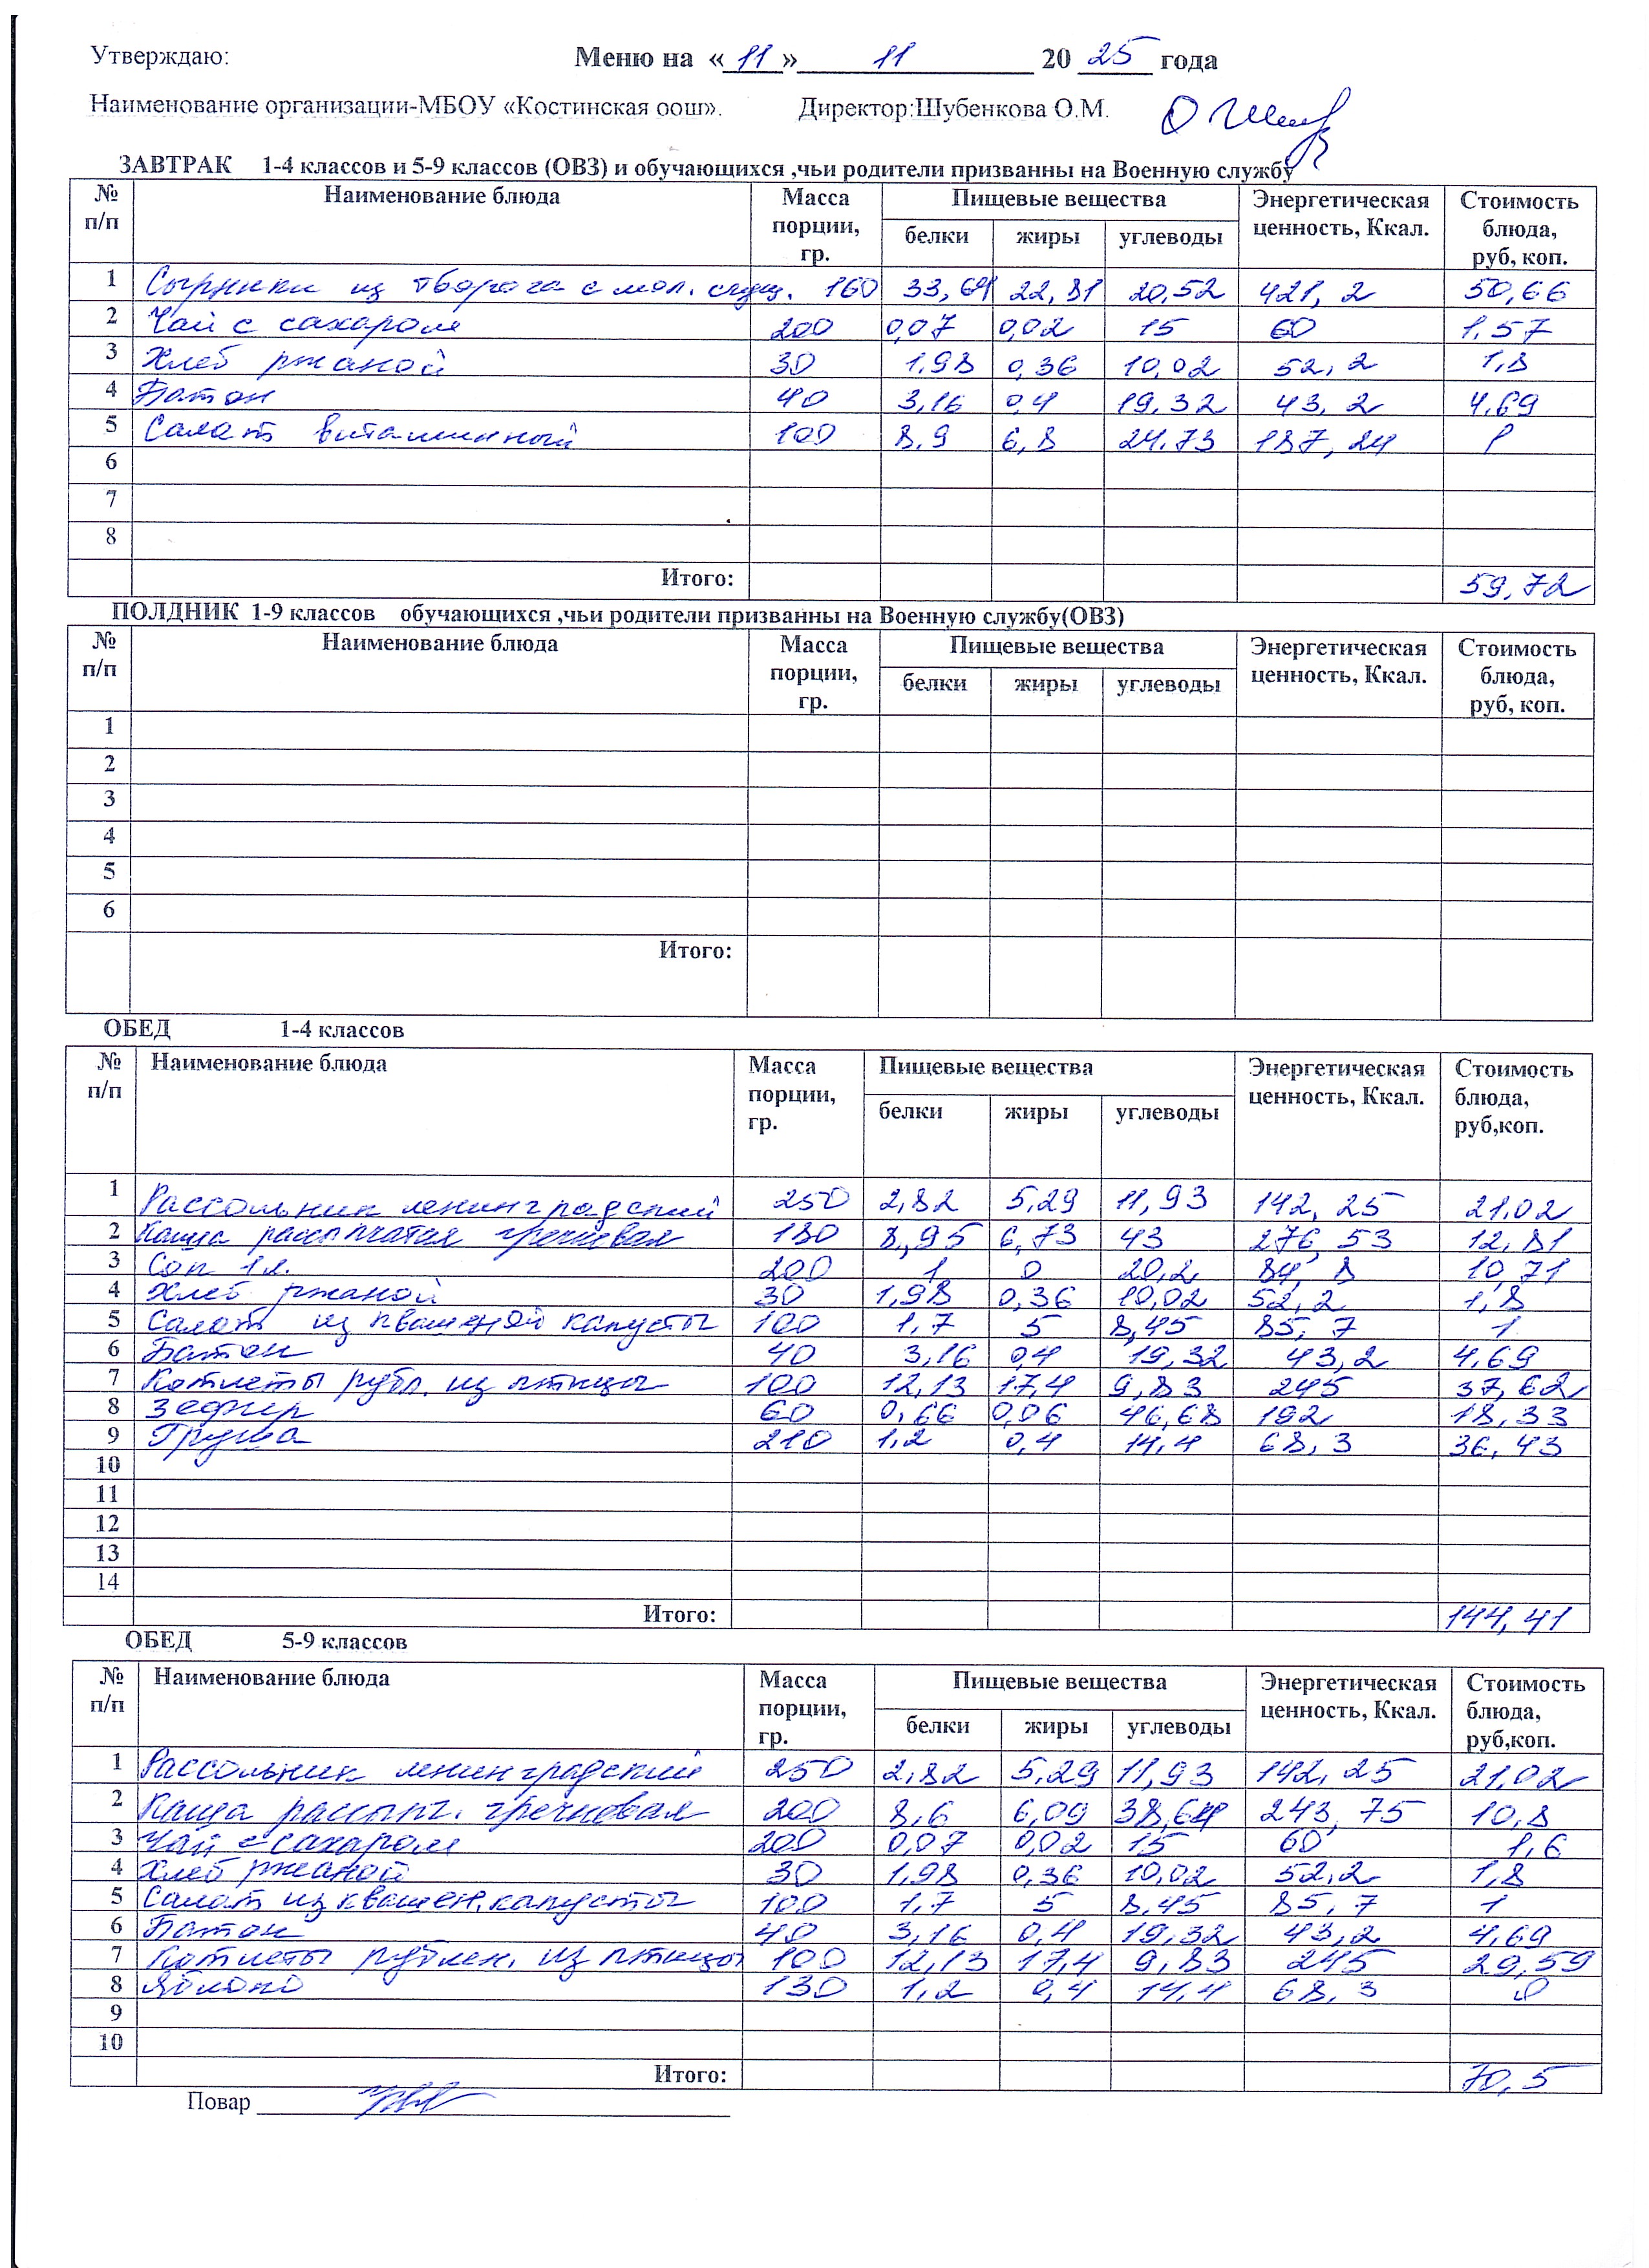 Утверждаю: Меню на «11» 11 20 25 года
Наименование организации-МБОУ «Костинская оош». Директор:Шубенкова О.М.
ЗАВТРАК 1-4 классов и 5-9 классов (ОВЗ) и обучающихся ,чьи родители призванны на Военную службу
№ п/п Наименование блюда Масса порции, гр. Пищевые вещества Энергетическая ценность, Ккал. Стоимость блюда, руб, коп.
белки жиры углеводы
1 Сырники из творога с мол. сгущ. 160 33,64 22,81 20,52 421,2 50,66
2 Чай с сахаром 200 0,07 0,02 15 60 1,57
3 Хлеб ржаной 30 1,98 0,36 10,02 52,2 1,8
4 Батон 40 3,16 0,4 19,32 43,2 4,69
5 Салат витаминный 100 8,9 6,8 24,73 187,24 1
6
7
8
Итого: 59,72
ПОЛДНИК 1-9 классов обучающихся ,чьи родители призванны на Военную службу(ОВЗ)
№ п/п Наименование блюда Масса порции, гр. Пищевые вещества Энергетическая ценность, Ккал. Стоимость блюда, руб, коп.
белки жиры углеводы
1
2
3
4
5
6
Итого:
ОБЕД 1-4 классов
№ п/п Наименование блюда Масса порции, гр. Пищевые вещества Энергетическая ценность, Ккал. Стоимость блюда, руб,коп.
белки жиры углеводы
1 Рассольник ленинградский 250 2,82 5,29 11,93 142,25 21,02
2 Каша рассыпчатая гречневая 180 8,95 6,73 43 276,53 12,81
3 Сок 1л. 200 1 0 20,2 84,8 10,71
4 Хлеб ржаной 30 1,98 0,36 10,02 52,2 1,8
5 Салат из квашеной капусты 100 1,7 5 8,45 85,7 1
6 Батон 40 3,16 0,4 19,32 43,2 4,69
7 Котлеты рубл. из птицы 100 12,13 17,4 9,83 245 37,62
8 Зефир 60 0,66 0,06 46,68 192 18,33
9 Груша 210 1,2 0,4 14,4 68,3 36,43
10
11
12
13
14
Итого: 144,41
ОБЕД 5-9 классов
№ п/п Наименование блюда Масса порции, гр. Пищевые вещества Энергетическая ценность, Ккал. Стоимость блюда, руб,коп.
белки жиры углеводы
1 Рассольник ленинградский 250 2,82 5,29 11,93 142,25 21,02
2 Каша рассып. гречневая 200 8,6 6,09 38,64 243,75 10,8
3 Чай с сахаром 200 0,07 0,02 15 60 1,6
4 Хлеб ржаной 30 1,98 0,36 10,02 52,2 1,8
5 Салат из квашен. капусты 100 1,7 5 8,45 85,7 1
6 Батон 40 3,16 0,4 19,32 43,2 4,69
7 Котлеты рублен. из птицы 100 12,13 17,4 9,83 245 29,59
8 Яблоко 130 1,2 0,4 14,4 68,3 0
9
10
Итого: 70,5
Повар